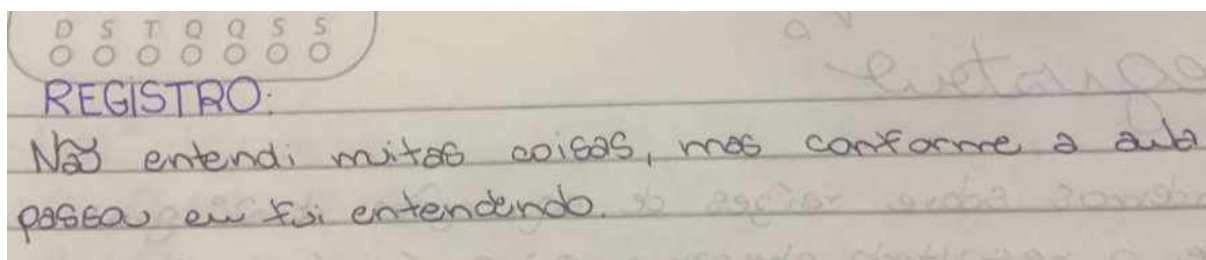 D S T Q Q S S
REGISTRO:
Não entendi muitas coisas, mas conforme a aula
passou eu fui entendendo.